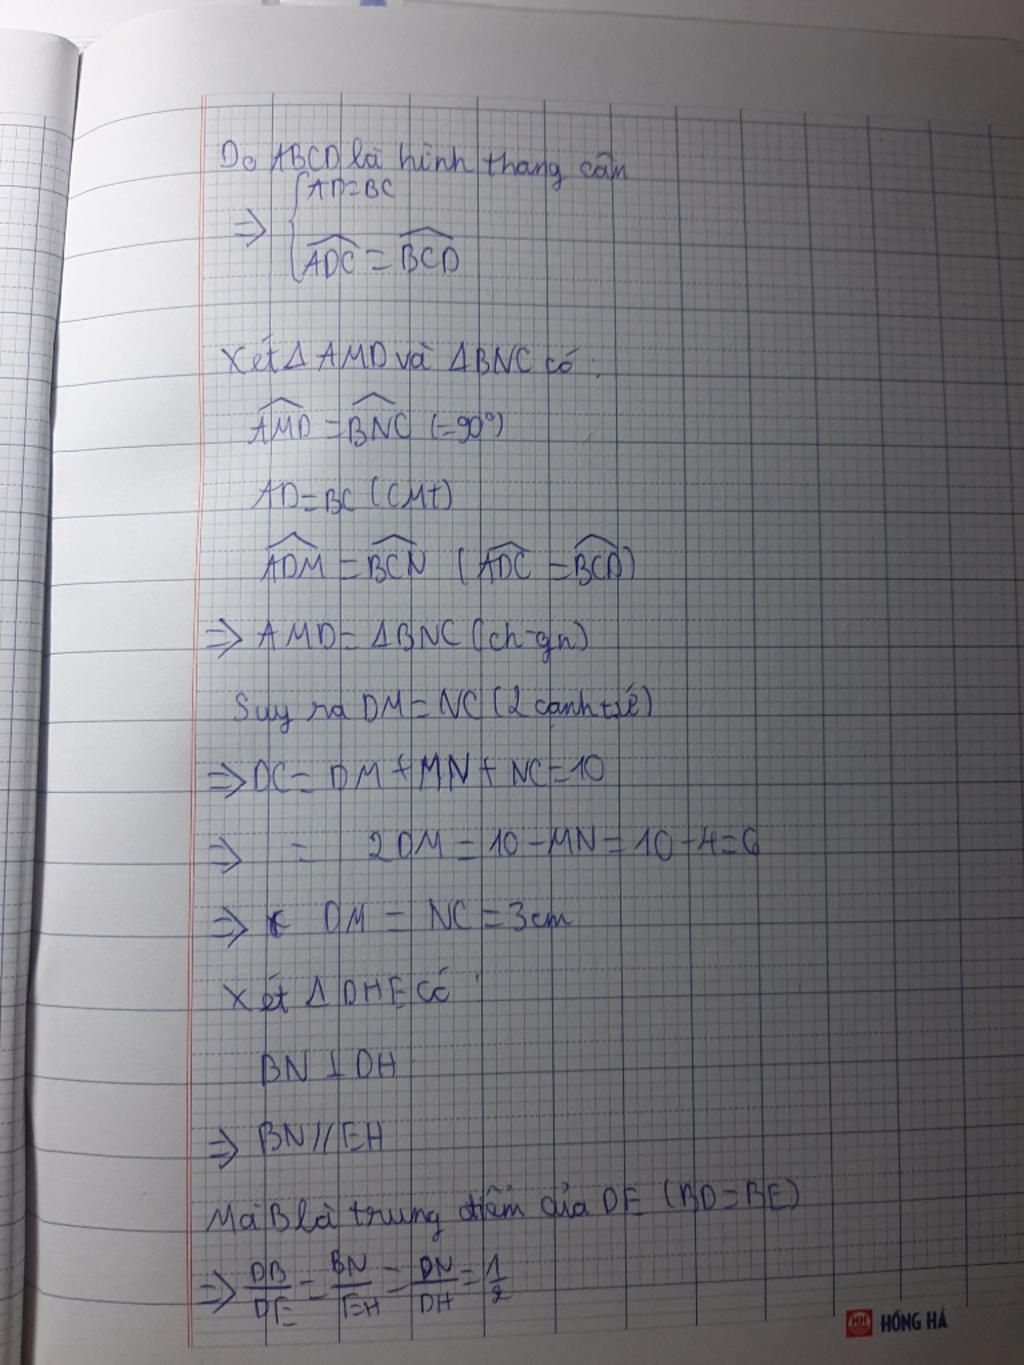 Do ABCD là hình thang cân
⇒ { AD=BC
ADC = BCD
Xét Δ AMD và ΔBNC có :
AMD = BNC (=90°)
AD=BC (CMt)
ADM = BCN ( ADC = BCD)
⇒ AMD= ΔBNC (ch-gn)
Suy ra DM = NC (2 cạnh t/ứ)
⇒ DC= DM + MN + NC=10
⇒ = 2DM = 10 -MN= 10 -4=6
⇒ DM = NC = 3cm
Xét Δ DHE có
BN ⊥ DH
⇒ BN // EH
Mà B là trung điểm của DE (BD=BE)
⇒ DB/DE = BN/EH = DN/DH = 1/2
HH HỒNG HÀ